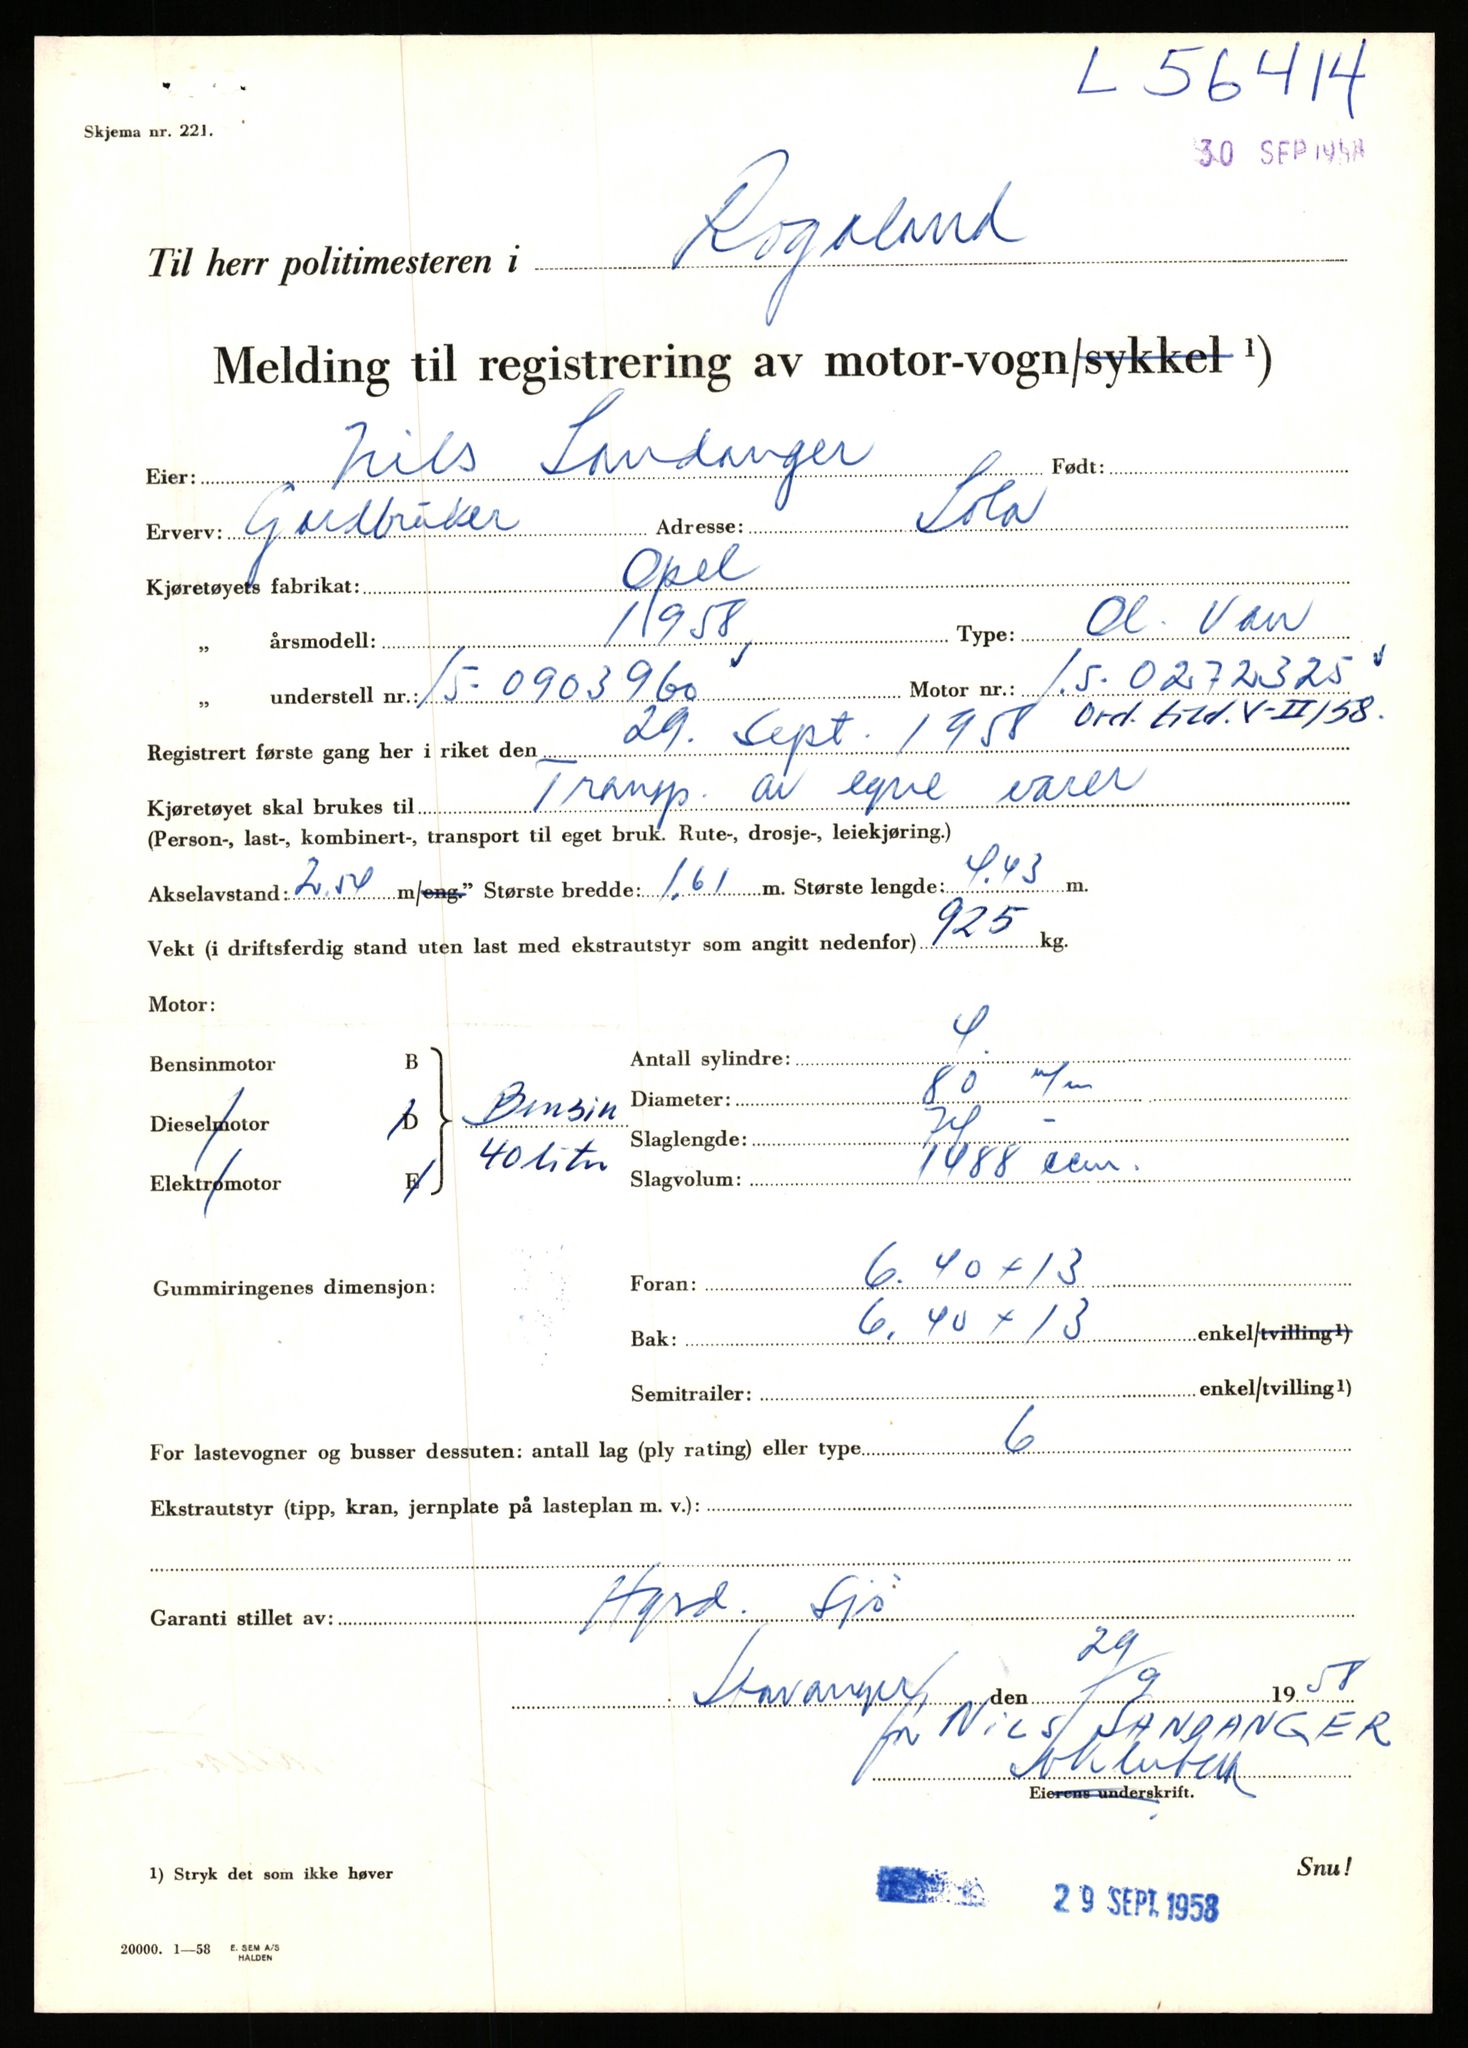 L 56414
Skjema nr. 221.
30 SEP 1958
Til herr politimesteren i Rogaland
Melding til registrering av motor-vogn/sykkel ¹)
Eier: Nils Sandanger Født:
Erverv: Gardbruker Adresse: Sola
Kjøretøyets fabrikat: Opel
„ årsmodell: 1958 Type: Ol. Van
„ understell nr.: 15-0903960 Motor nr.: 1.5-0272325
Ord. tild. V-II/58.
Registrert første gang her i riket den 29. Sept. 1958
Kjøretøyet skal brukes til Transp. av egne varer
(Person-, last-, kombinert-, transport til eget bruk. Rute-, drosje-, leiekjøring.)
Akselavstand: 2.54 m/eng." Største bredde: 1.61 m. Største lengde: 4.43 m.
Vekt (i driftsferdig stand uten last med ekstrautstyr som angitt nedenfor) 925 kg.
Motor:
Bensinmotor B
Dieselmotor D
Elektromotor E
Bensin
40 liter
Antall sylindre: 4.
Diameter: 80 m/m
Slaglengde: 74 -
Slagvolum: 1488 ccm.
Gummiringenes dimensjon: Foran: 6.40 x 13
Bak: 6.40 x 13 enkel/tvilling¹)
Semitrailer: enkel/tvilling¹)
For lastevogner og busser dessuten: antall lag (ply rating) eller type 6
Ekstrautstyr (tipp, kran, jernplate på lasteplan m. v.):
Garanti stillet av: Hgsd. Sjö
Stavanger, den 29/9 1958
for NILS SANDANGER
Eierens underskrift.
1) Stryk det som ikke høver
Snu!
29 SEPT. 1958
20000. 1—58 E. SEM A/S
HALDEN